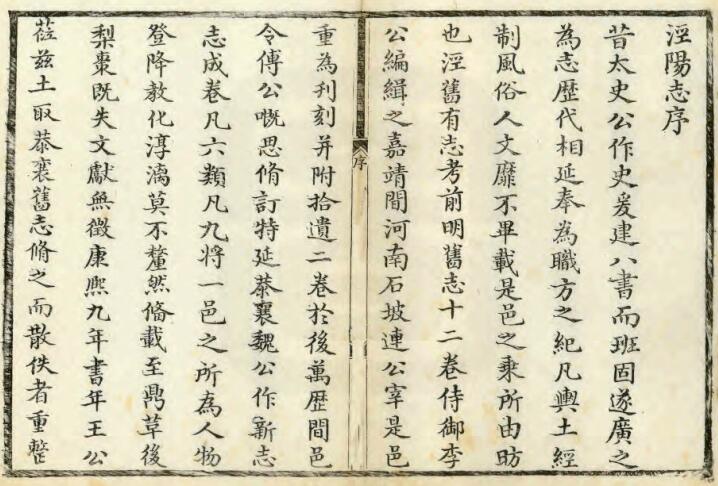 涇陽志序
昔太史公作史爰建八書而班固遂廣之
為志歷代相延奉為職方之紀凡輿土經
制風俗人文靡不畢載是邑之乘所由昉
也涇舊有志考前明舊志十二卷侍御李
公編緝之嘉靖間河南石坡連公宰是邑
序
重為刋刻并附拾遺二卷於後萬歷間邑
令傅公嘅思脩訂特延恭襄魏公作新志
志成卷凡六類凡九將一邑之所為人物
登降教化淳漓莫不釐然備載至鼎草後
梨棗既失文獻無徵康熙九年書年王公
蒞茲土取恭襄舊志脩之而散佚者重整